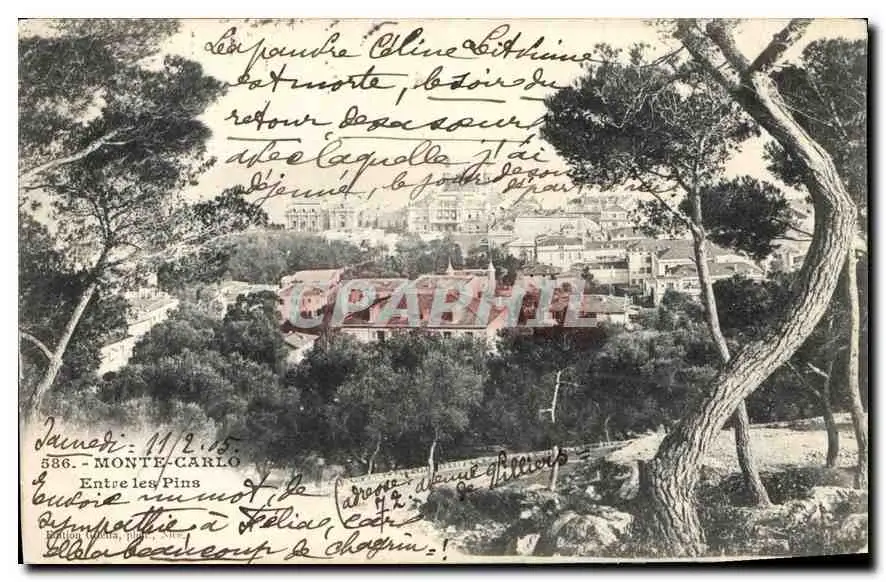 La pauvre Céline Lithimne
est morte, le soir du
retour de sa sœur,
avec laquelle j'ai
déjeuné, le jour de son
départ à Nice
CAPHIL
Samedi = 11/2 05.
586. - MONTE-CARLO
Entre les Pins
Envoie un mot, de
sympathie à Félia, car
elle a beaucoup de chagrin = !
(adresse : avenue Villiers
72. de
Edition Giletta, phot., Nice